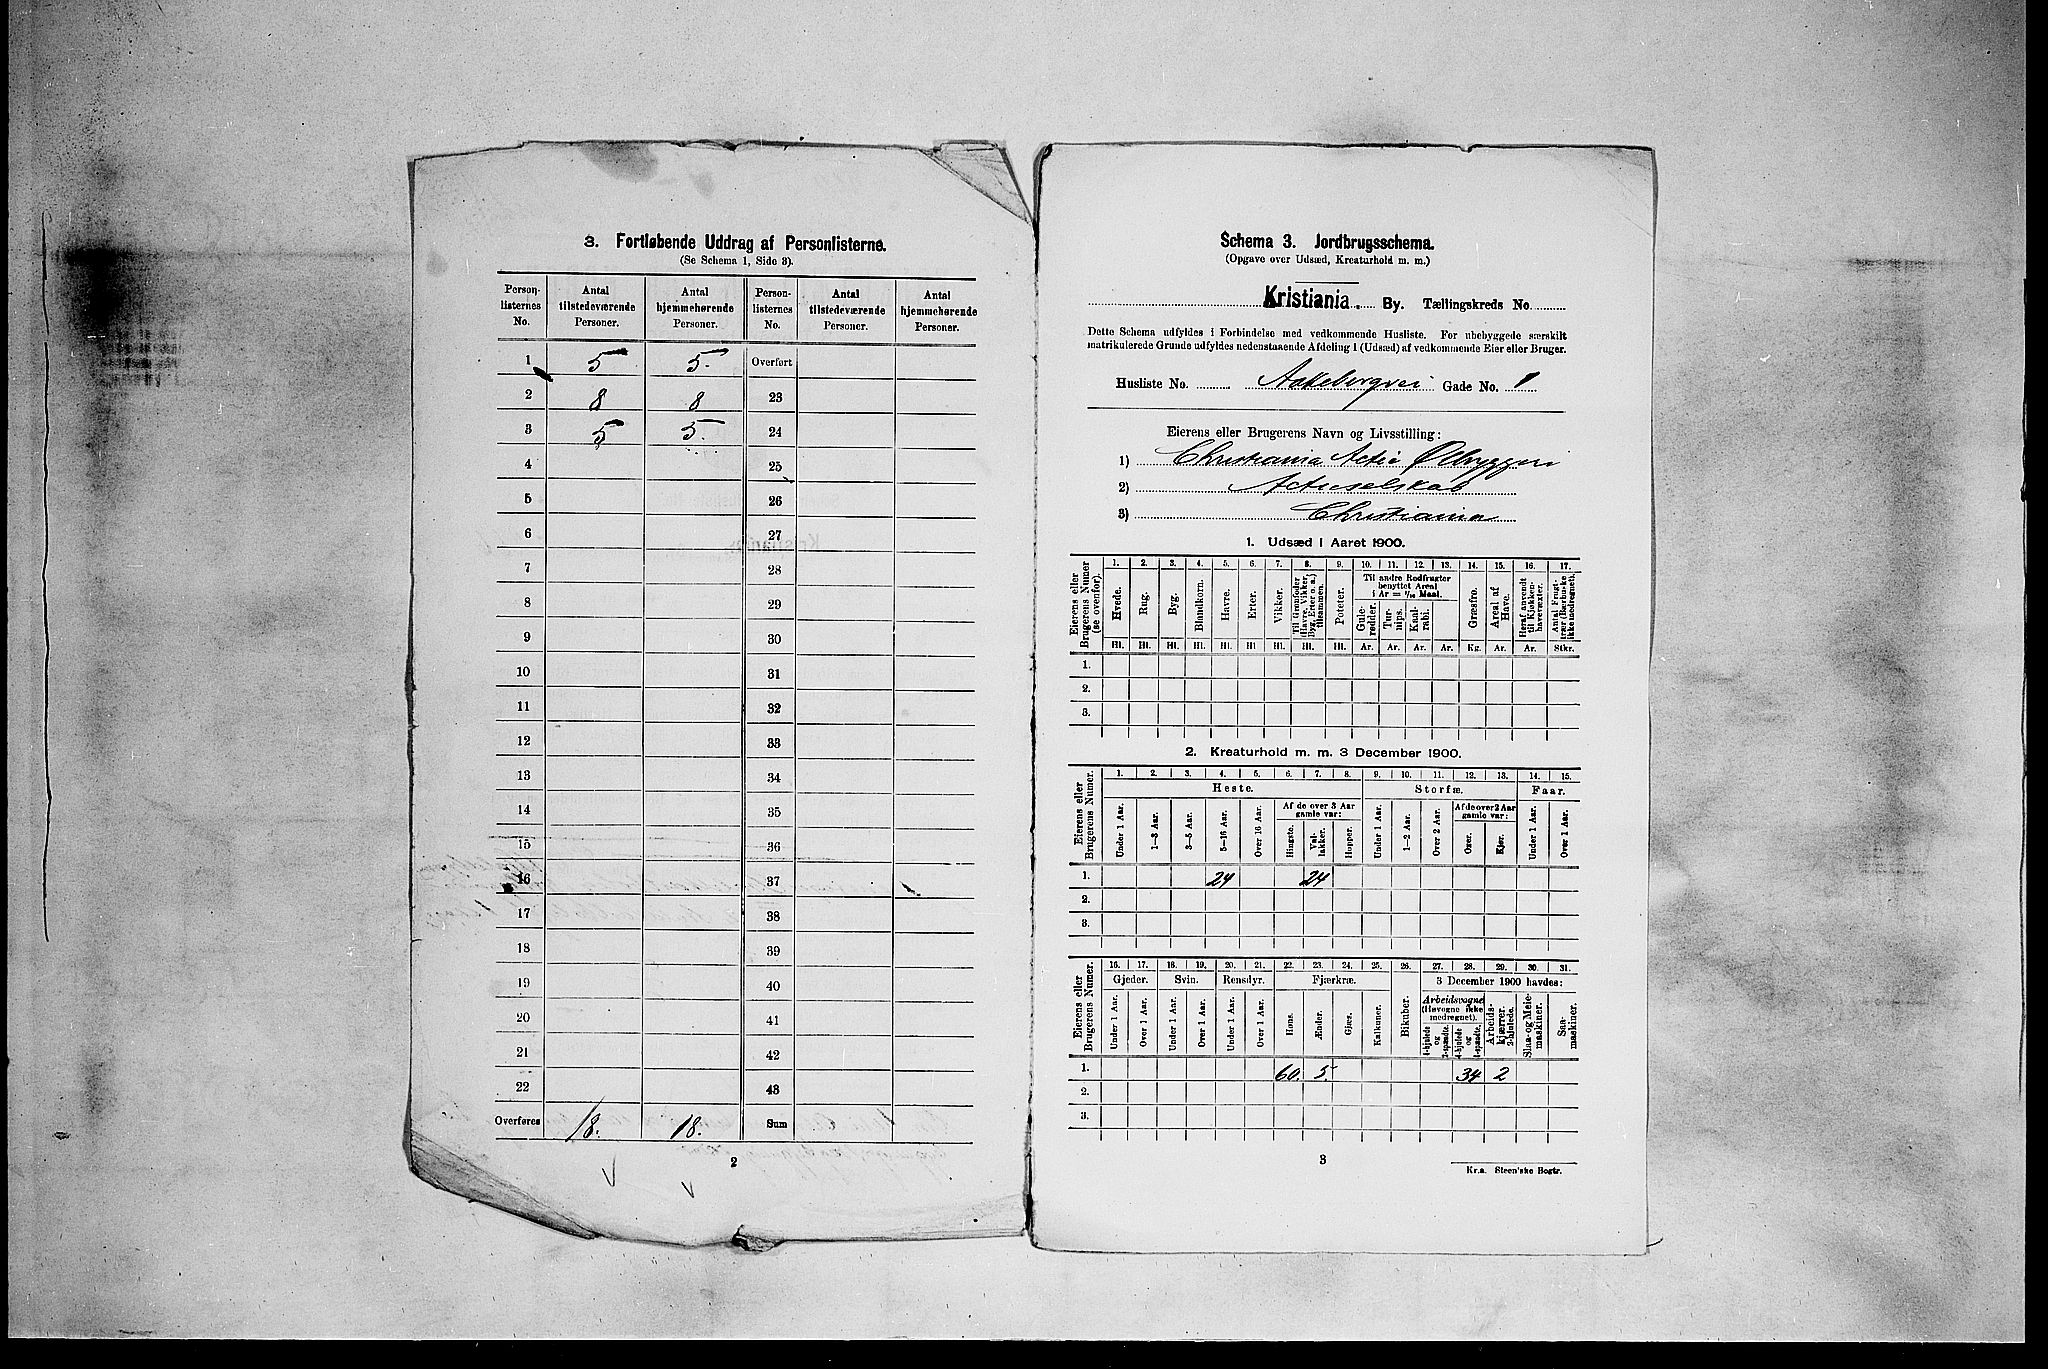 3. Fortløbende Uddrag af Personlisterne.
(Se Schema 1, Side 3).
Person-listernes No. | Antal tilstedeværende Personer. | Antal hjemmehørende Personer. | Person-listernes No. | Antal tilstedeværende Personer. | Antal hjemmehørende Personer.
1 5 5. Overført
2 8 8 23
3 5 5. 24
4 25
5 26
6 27
7 28
8 29
9 30
10 31
11 32
12 33
13 34
14 35
15 36
16 37
17 38
18 39
19 40
20 41
21 42
22 43
Overføres 18. 18. Sum
2
Schema 3. Jordbrugsschema.
(Opgave over Udsæd, Kreaturhold m. m.)
Kristiania. By. Tællingskreds No.
Dette Schema udfyldes i Forbindelse med vedkommende Husliste. For ubebyggede særskilt
matrikulerede Grunde udfyldes nedenstaaende Afdeling 1 (Udsæd) af vedkommende Eier eller Bruger.
Husliste No. Aakebergvei Gade No. 1
Eierens eller Brugerens Navn og Livsstilling:
1) Christiania Actie Ølbryggeri
2) Actieselskab
3) Christiania
1. Udsæd i Aaret 1900.
Eierens eller Brugerens Numer (se ovenfor).
1. 2. 3. 4. 5. 6. 7. 8. 9. 10. 11. 12. 13. 14. 15. 16. 17.
Hvede. Rug. Byg. Blandkorn. Havre. Erter. Vikker. Til Grønfoder (Havre, Vikker, Byg, Erter o. a.) tilsammen. Poteter. Til andre Rodfrugter benyttet Areal i Ar = 1/10 Maal. Gule-rødder. Tur-nips. Kaal-rabi. Græsfrø. Areal af Have. Heraf anvendt til Kjøkken-havevæxter. Antal Frugt-trær (Bærbuske ikke medregnet).
Hl. Hl. Hl. Hl. Hl. Hl. Hl. Hl. Hl. Ar. Ar. Ar. Ar. Kg. Ar. Ar. Stkr.
1.
2.
3.
2. Kreaturhold m. m. 3 December 1900.
Eierens eller Brugerens Numer.
1. 2. 3. 4. 5. 6. 7. 8. 9. 10. 11. 12. 13. 14. 15.
Heste. Storfæ. Faar.
Under 1 Aar. 1—3 Aar. 3—5 Aar. 5—16 Aar. Over 16 Aar. Af de over 3 Aar gamle var: Hingste. Val-lakker. Hopper. Under 1 Aar. 1—2 Aar. Over 2 Aar. Af de over 2 Aar gamle var: Oxer. Kjør. Under 1 Aar. Over 1 Aar.
1. 24 24
2.
3.
Eierens eller Brugerens Numer.
16. 17. 18. 19. 20. 21. 22. 23. 24. 25. 26. 27. 28. 29. 30. 31.
Gjeder. Svin. Rensdyr. Fjærkræ. Kalkuner. Bikuber. 3 December 1900 havdes:
Under 1 Aar. Over 1 Aar. Under 1 Aar. Over 1 Aar. Under 1 Aar. Over 1 Aar. Høns. Ænder. Gjæs. Arbeidsvogne (Høvogne ikke medregnet). 4-hjulede og 2-spændte. 4-hjulede og 1-spændte. Arbeids-kjærrer. 2-hjulede. Slaa- og Meie-maskiner. Saa-maskiner.
1. 60. 5. 34 2
2.
3.
3
Kr.a. Steen'ske Bogtr.